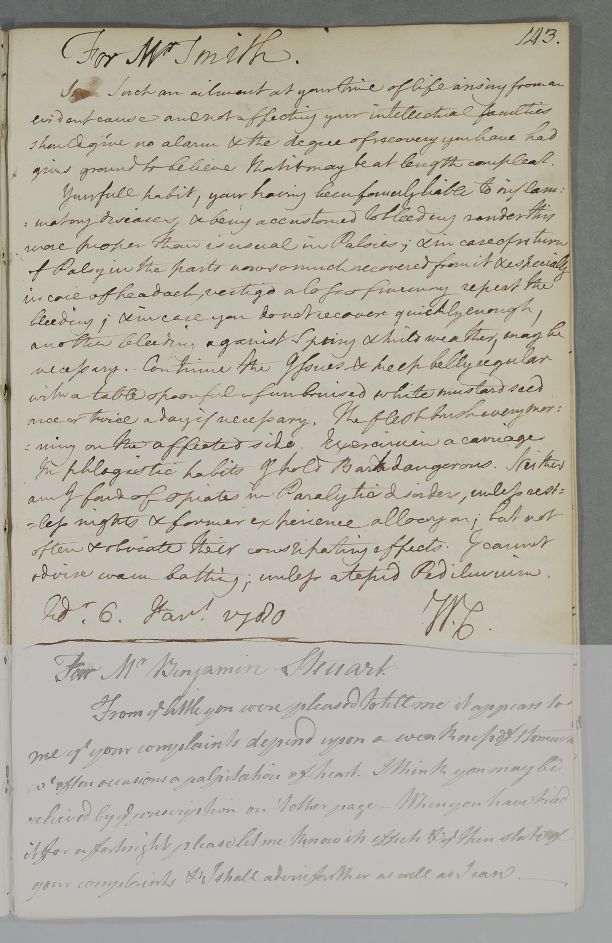 143.
For Mr Smith.
Sir Such an ailment at your time of life arising from an
evident cause and not affecting your intellectual faculties
should give no alarm & the degree of recovery you have had
gives ground to believe that it may be at length compleat.
Your full habit, your having been formerly liable to inflam:
:matory diseases, & being accustomed to bleeding render this
more proper than is usual in Palsies; & in case of return
of Palsy in the parts now so much recovered from it & especially
in case of headach, vertigo a loss of memory repeat the
bleeding; & in case you do not recover quickly enough,
another bleeding against Spring & mild weather, may be
necessary. Continue the Issues & keep belly regular
with a table spoonful of unbruised white mustard seed
once or twice a day if necessary. The flesh brush every mor:
:ning on the affected side. Exercise in a carriage
In phlogistic habits I hold Bark dangerous. Neither
am I fond of opiates in Paralytic disorders, unless rest:
:less nights & former experience allow you; but not
often & obviate their constipating effects. I cannot
advise warm bathing; unless a tepid Pediluvium.
Edr. 6. Janr. 1780 W. C.
For Mr Benjamin Steuart
From ye little you were pleased to tell me it appears to
me yt your complaints depend upon a weakness of Stomach
wc often occasions a palpitation of heart. I think you may be
relieved by ye prescription on t'other page – When you have tried
it for a fortnight please let me know its effects & ye then state of
your complaints & I shall advise farther as well as I can.